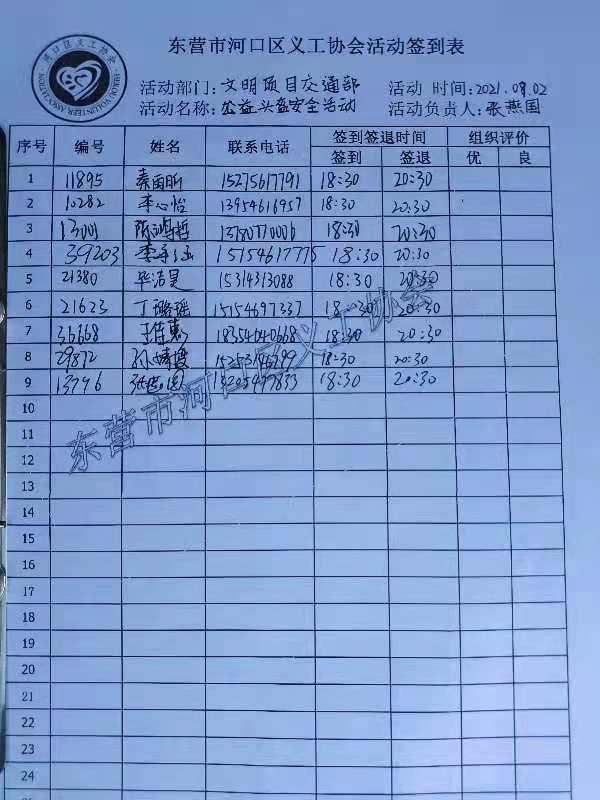 东营市河口区义工协会活动签到表
河口区义工协会
HEKOU VOLUNTEER ASSOCIATION
活动部门:文明项目交通部 活动 时间:2021.09.02
活动名称:公益头盔安全活动 活动负责人:张燕国
序号 编号 姓名 联系电话 签到签退时间 组织评价
签到 签退 优 良
1 11895 秦雨昕 15275617791 18:30 20:30
2 10282 李心怡 13954616957 18:30 20:30
3 13001 陈鸿哲 13780770006 18:30 20:30
4 39203 李 15154617775 18:30 20:30
5 21380 毕洁昊 15314313088 18:30 20:30
6 21623 丁璐瑶 15154697337 18:30 20:30
7 36668 王佳惠 18354640668 18:30 20:30
8 29872 孙婧 18:30 20:30
9 13746 张 18:30 20:30
10
11
12
13
14
15
16
17
18
19
20
21
22
23
24
东营市河口区义工协会